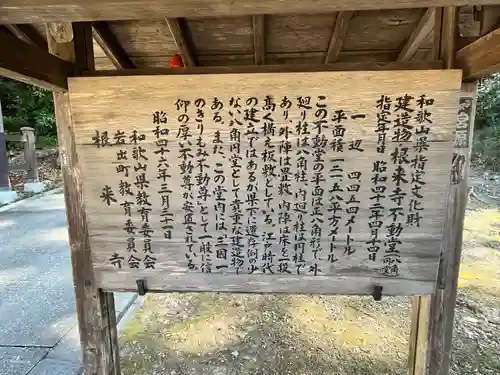 和歌山県指定文化財
建造物 根来寺不動堂
指定年月日 昭和四十二年四月十四日
一辺 四四五四メートル
平面積 一二一・五八平方メートル
この不動堂の平面は正八角形で、外
廻り柱は八角柱、内廻り柱は円柱で
あり、外陣は畳敷、内陣は床を一段
高く構え板敷としている。江戸時代
の建立ではあるが県下に遺存例の少
ない八角円堂として貴重な建造物で
ある。また、この堂には、三国一
のきりもみ不動尊として一般に信
仰の厚い不動尊が安置されている。
昭和四十六年三月三十一日
和歌山県教育委員会
岩出町教育委員会
根来寺